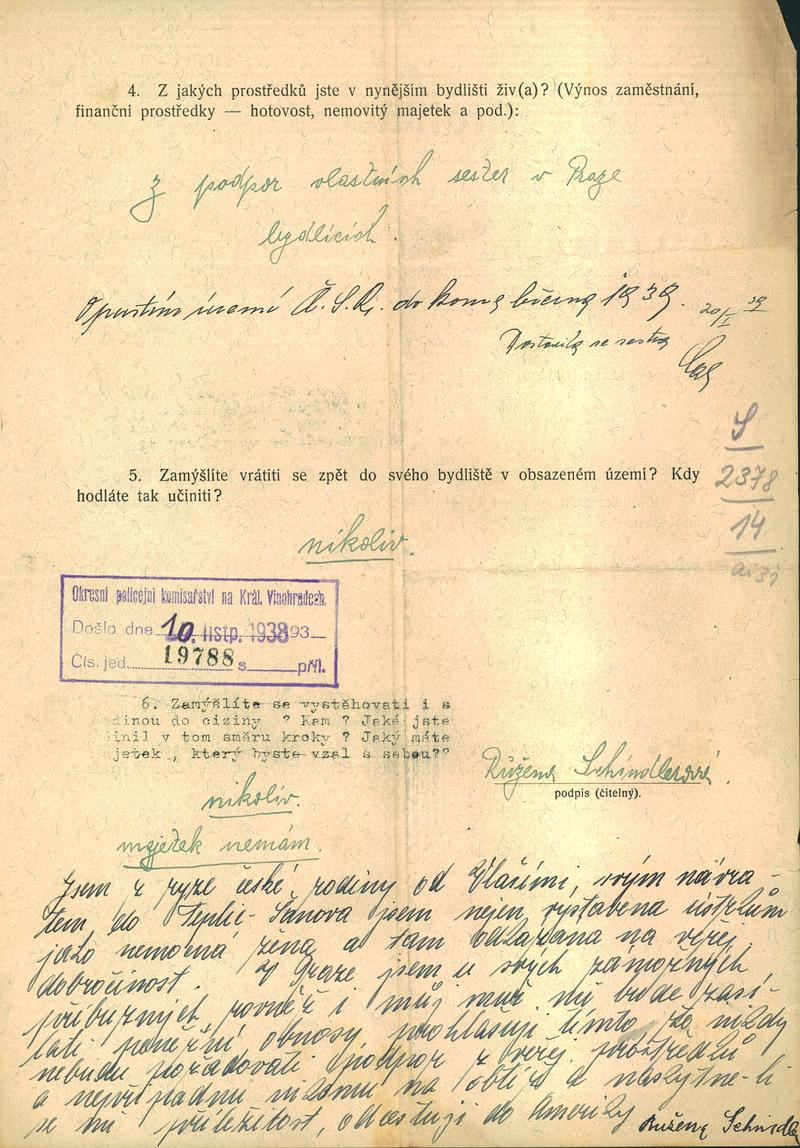 4. Z jakých prostředků jste v nynějším bydlišti živ(a)? (Výnos zaměstnání,
finanční prostředky — hotovost, nemovitý majetek a pod.):
Z podpor vlastních sester v Praze
bydlících.
Opustím území Č.S.R. do konce března 1939. 20/I 39
Dostavila se sestra
5. Zamýšlíte vrátiti se zpět do svého bydliště v obsazeném území? Kdy
hodláte tak učiniti?
S
2378
14
ai 31
nikoliv.
Okresní policejní komisařství na Král. Vinohradech.
Došlo dne 10. listp. 1938 93
Čís. jed. 19788 s příl.
6. Zamýšlíte se vystěhovati i s
dinou do ciziny ? Kam ? Jaké jste
inil v tom směru kroky ? Jaký máte
jetek , který byste vzal s sebou??
Růžena Schindlerová.
podpis (čitelný).
nikoliv.
majetek nemám.
Jsem z ryze české rodiny od Vlašimi, svým návra-
tem do Teplic-Šanova jsem nejen vystavena ústrkům
jako nemocná žena a tam odkázana na veřej.
dobročinnost. V Praze jsem u svých zámožných
příbuzných rovněž i můj muž mi bude zasí-
lati peněžní obnosy prohlašuji tímto že nikdy
nebudu požadovati podpor z veřej. prostředků
a nepřipadnu nikomu na obtíž a naskytne-li
se mi příležitost, odcestuji do Ameriky Růžena Schindle